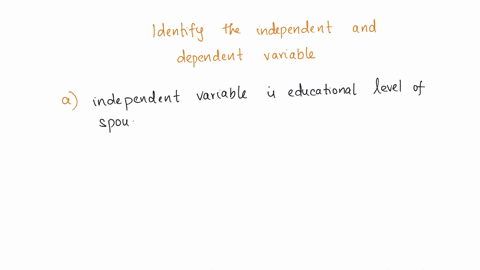 Identify the independent and
dependent variable
a) independent variable is educational level of
spou